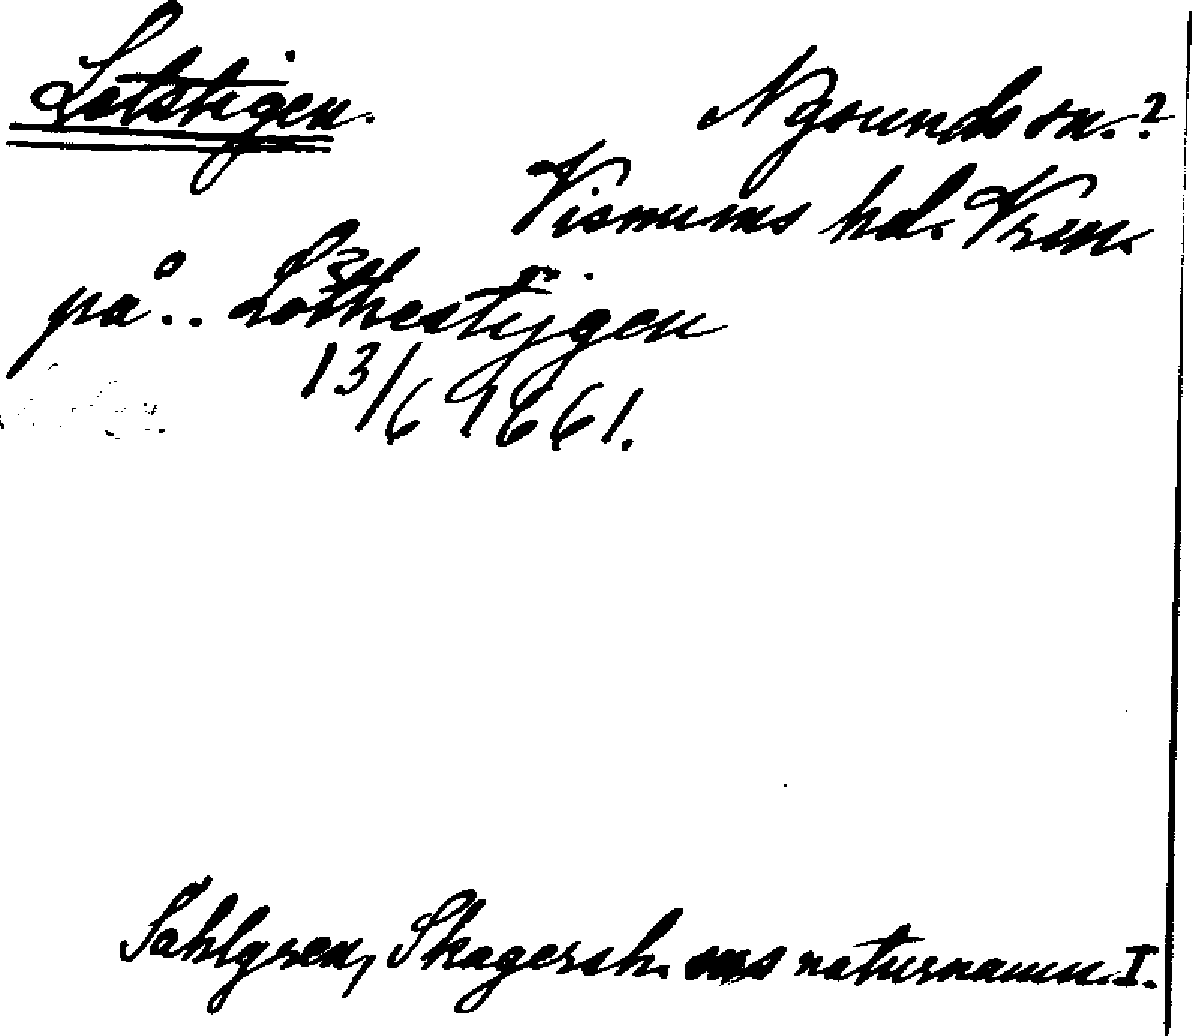 Lotstigen.
Nysunds sn.?
Visnums hd. Vrm.
på.. Lothestijgen
13/6 1661.
Sahlgren, Skagersh. sns naturnamn. I.